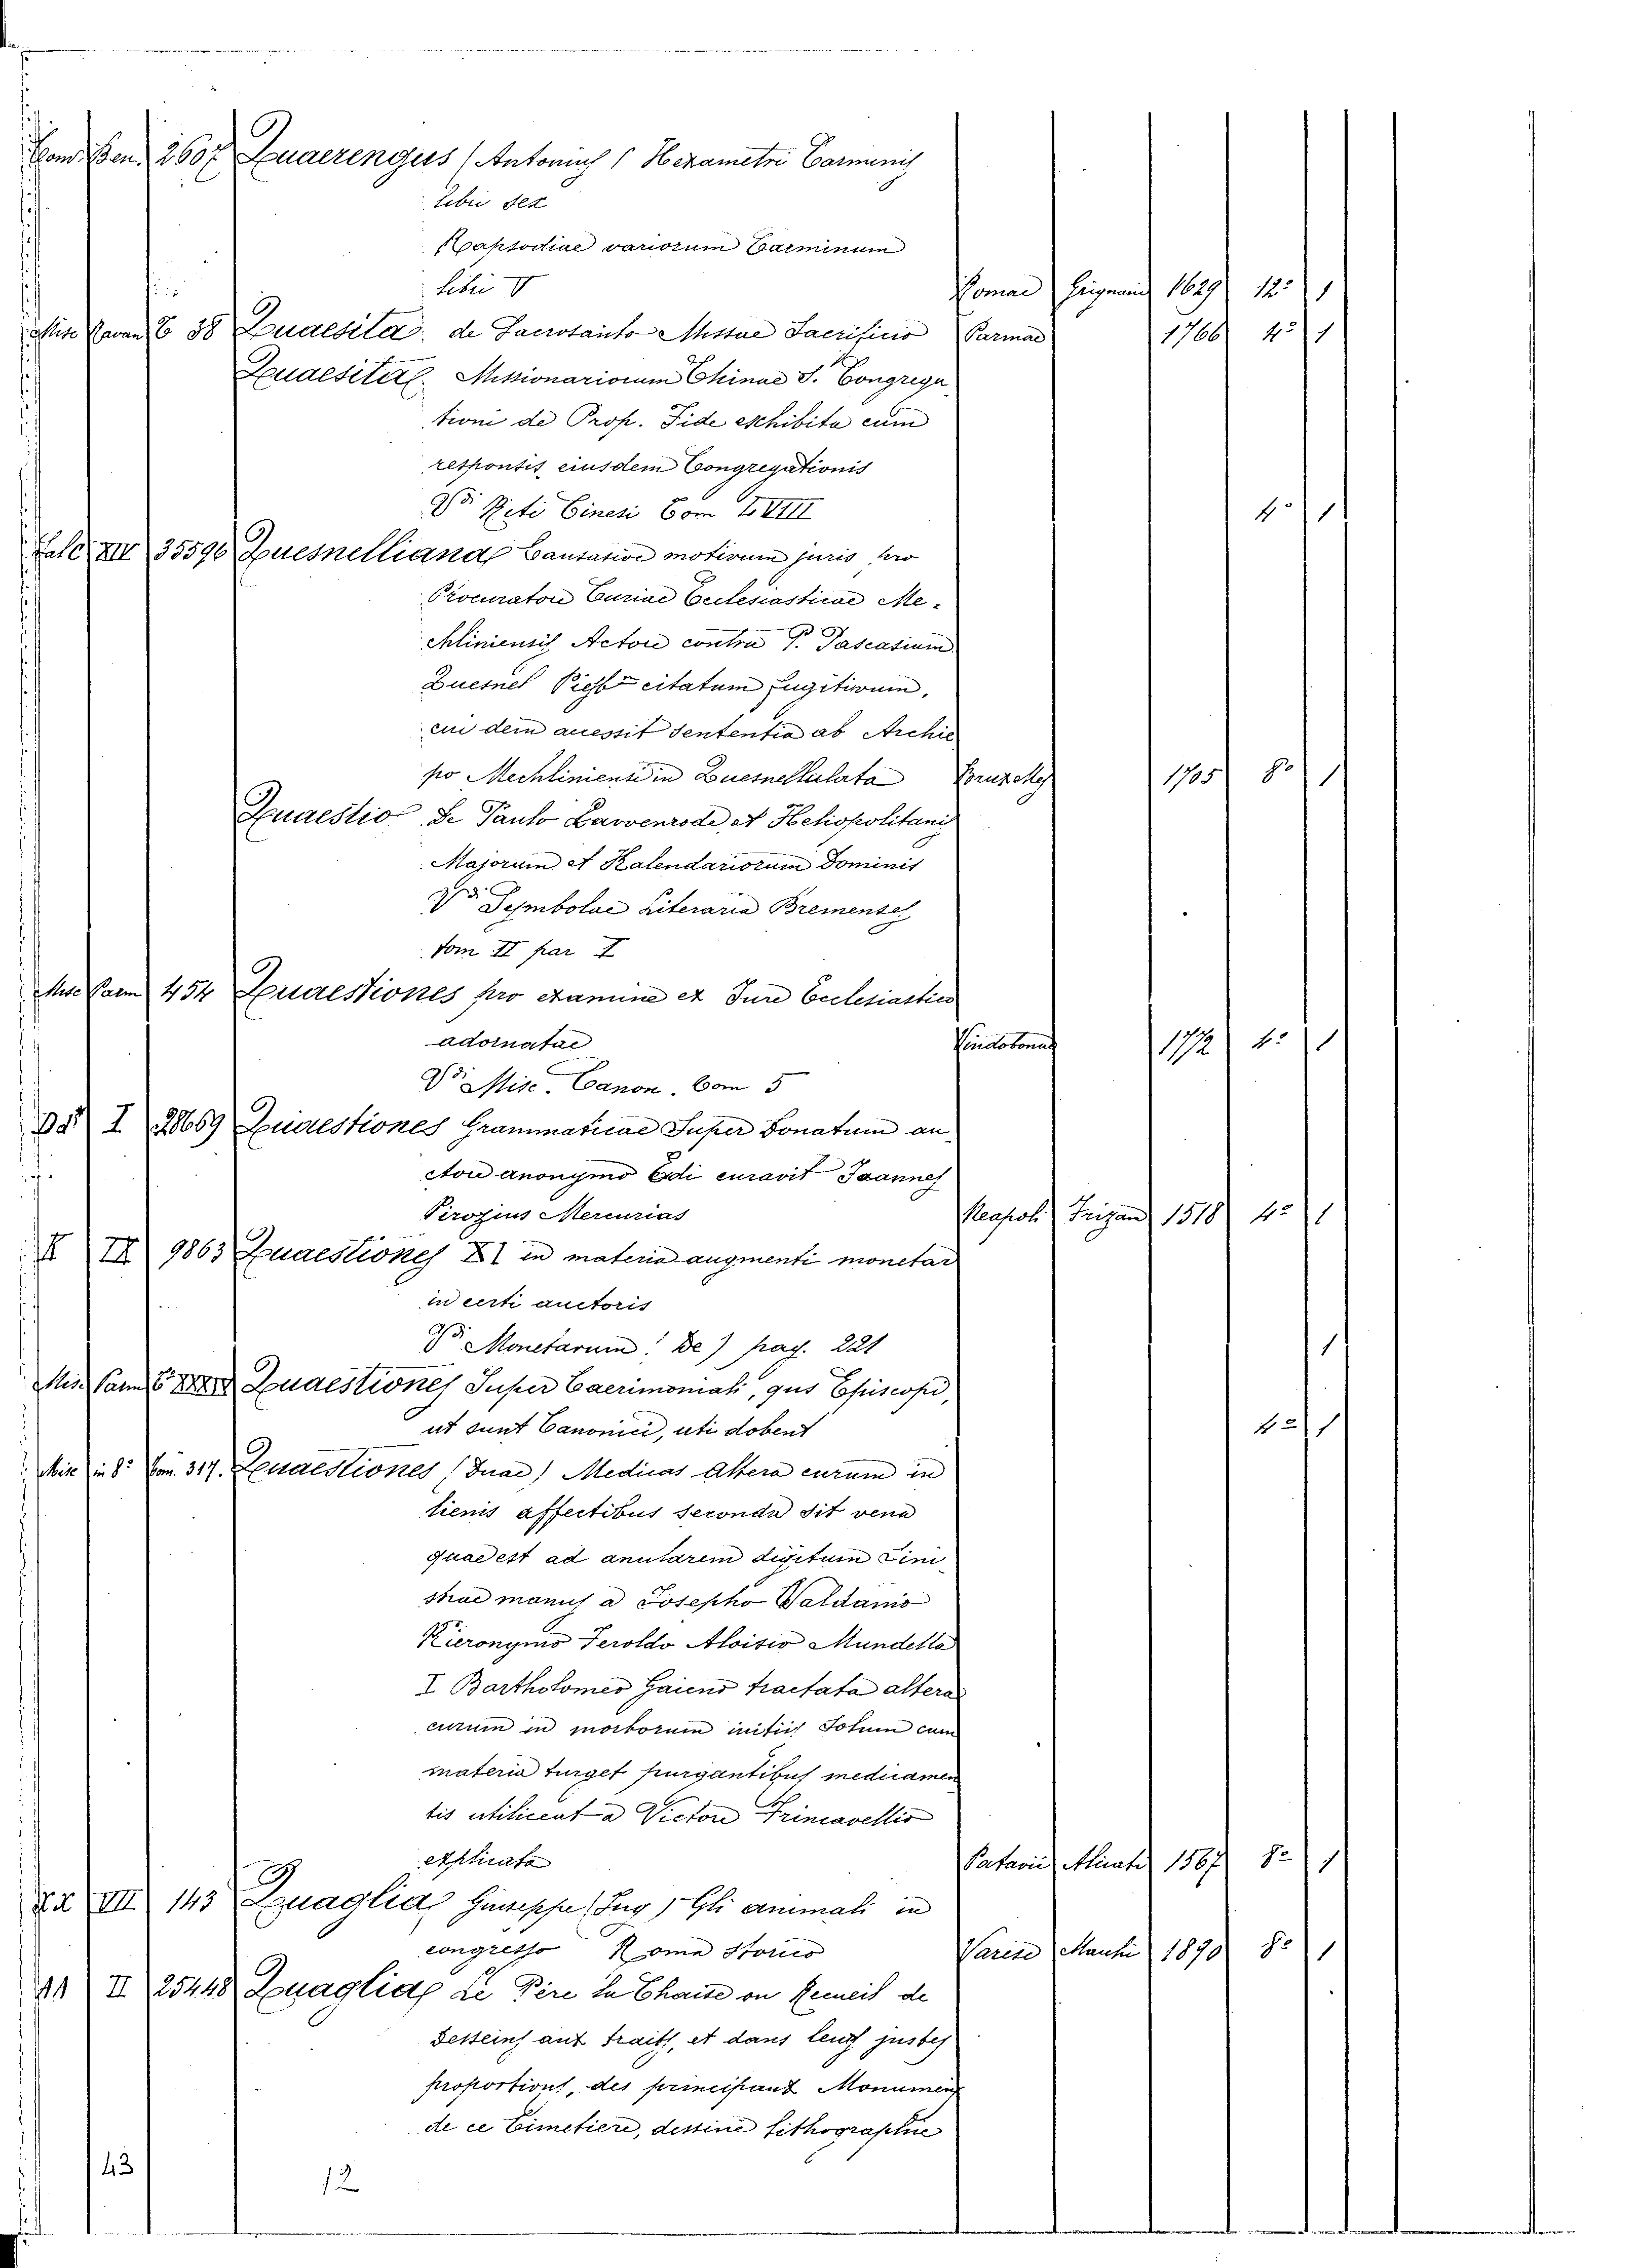 2607 Quaerengus (Antonius) Hexametri Carminis
Libri sex
Rapsodiae variorum Carminum
Libri V Romae 1629 12° 1
38 Quaesita de Sacrosanto Missae Sacrificio Parmae 1766 4° 1
Quaesita Missionariorum Chinae S. Congrega
tioni de Prop. Fide exhibita cum
responsis eiusdem Congregationis
Vdi Riti Cinesi Tom VIII 4° 1
XII 35596 Quesnelliana Causasive motivum juris pro
Procuratore Curiae Ecclesiasticae Me-
chliniensis Actore contra P. Pascasium
Quesnel citatum fugitivum,
cui dein accessit sententia ab Archie
po Mechliniensi in Quesnellulata Bruxelles 1705 8° 1
Quaestio De Paulo Lavvenrode et Heliopolitanis
Majorum et Kalendariorum Dominis
Vdi Symbolae Literaria Bremenses
Tom II par I
Misc Parm 454 Quaestiones pro examine ex Jure Ecclesiastico
adornatae Vindobonae 1772 4° 1
Vdi Misc. Canon. Tom 5
I 28669 Quaestiones Grammaticae Super Donatum au
ctore anonymo Edi curavit Joannes
Pirozius Mercurias Neapoli Frizan 1518 4° 1
9863 Quaestiones XI in materia augmenti monetae
in certi auctoris
Vdi Monetarum (De) pag. 221 1
Misc Parm Quaestiones Super Caerimoniali, qus Episcopi,
ut sunt Canonici, uti dobent 4° 1
Misc in 8° Tom. 317. Quaestiones (Duae) Medicas Altera eurum in
lienis affectibus seconda sit vena
quae est ad anularem digitum Sini
strae manus a Josepho Valdanio
Hieronymo Feroldo Aloisio Mundella
I Bartholomeo Gaieno tractata altera
eurum in morborum initiis Solum cum
materia turget purgantibus medicamen
tis utiliceat a Victore Trincavellio
explicata Patavii 1567 8° 1
VIII 143 Quaglia Giuseppe (Ing) Gli animali in
congresso Roma Storico Varese 1890 8° 1
II 25448 Quaglia Le Père la Chaise on Recueil de
Desseins aut traits, et dans leurs justes
proportions, des principaux Monumens
de ce Cimetiere, dessine lithographie
43
12